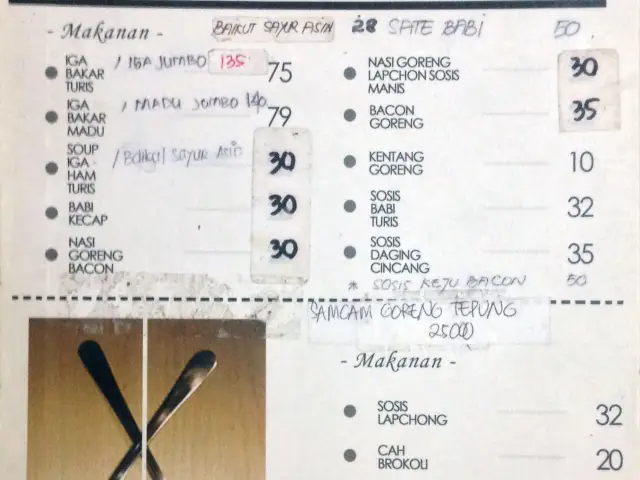 - Makanan -
BAIKUT SAYUR ASIN 28
SATE BABI 50
IGA / IGA JUMBO 135
BAKAR 75
TURIS
IGA / MADU JOMBO 140
BAKAR 79
MADU
SOUP
IGA / Baikut Sayur Asin 30
HAM
TURIS
BABI 30
KECAP
NASI 30
GORENG
BACON
NASI GORENG 30
LAPCHON SOSIS
MANIS
BACON 35
GORENG
KENTANG 10
GORENG
SOSIS 32
BABI
TURIS
SOSIS 35
DAGING
CINCANG
* SOSIS KEJU BACON 50
SAMCAM GORENG TEPUNG
25000
- Makanan -
SOSIS 32
LAPCHONG
CAH 20
BROKOLI